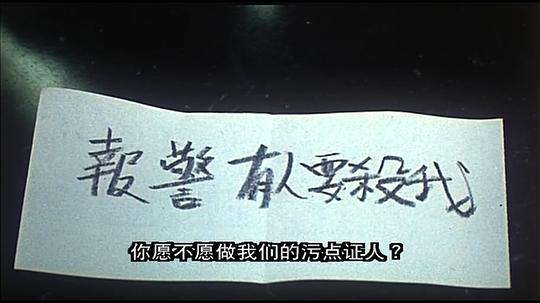 報警有人要殺我
你愿不愿做我们的污点证人？